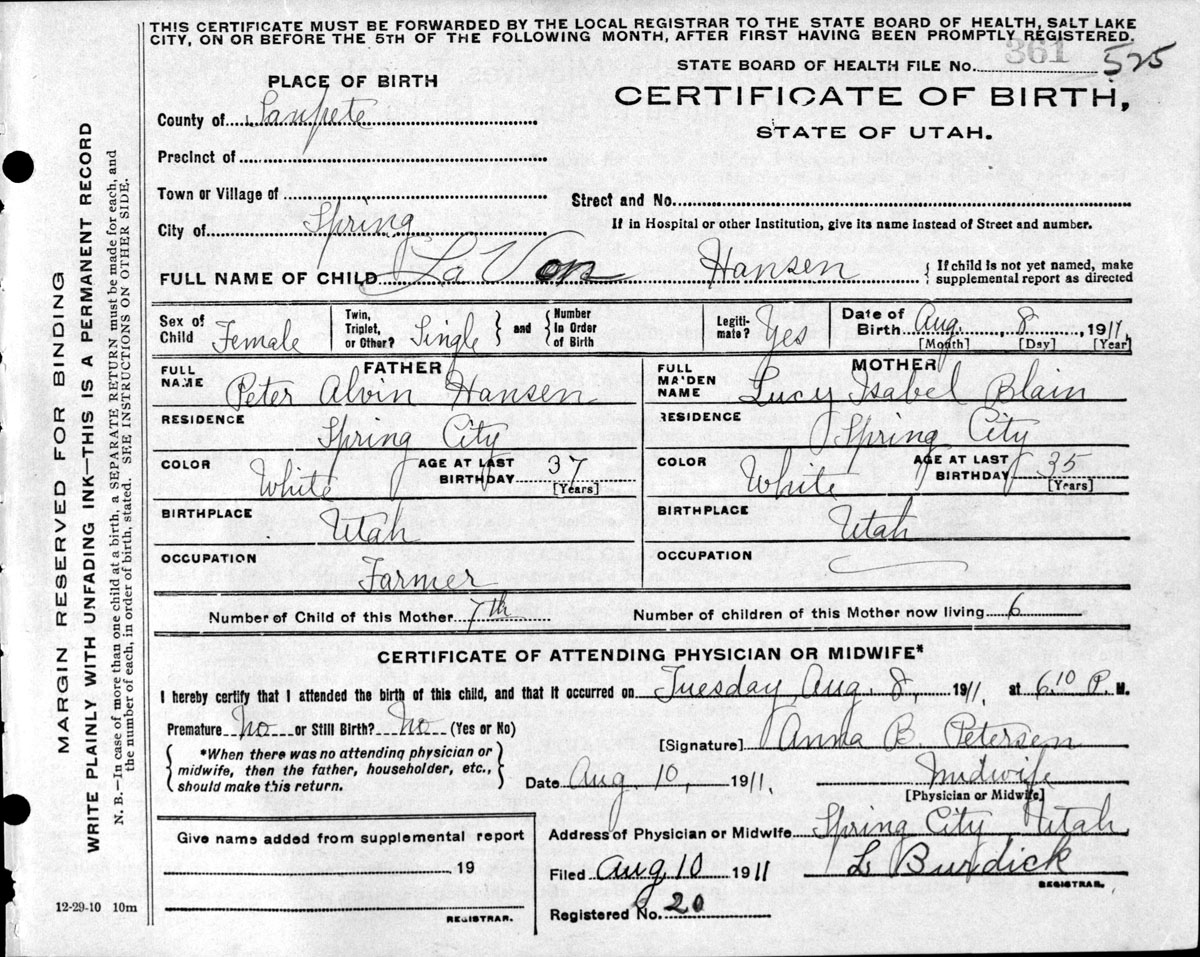 THIS CERTIFICATE MUST BE FORWARDED BY THE LOCAL REGISTRAR TO THE STATE BOARD OF HEALTH, SALT LAKE
CITY, ON OR BEFORE THE 5TH OF THE FOLLOWING MONTH, AFTER FIRST HAVING BEEN PROMPTLY REGISTERED.
STATE BOARD OF HEALTH FILE No. 361 525
PLACE OF BIRTH
CERTIFICATE OF BIRTH,
STATE OF UTAH.
County of Sanpete
Precinct of
Town or Village of
Street and No.
City of Spring
If in Hospital or other Institution, give its name Instead of Street and number.
FULL NAME OF CHILD La Von Hansen { If child is not yet named, make supplemental report as directed
Sex of Child Female Twin, Triplet, or Other? Single } and { Number in Order of Birth Legiti-mate? Yes Date of Birth Aug. 8 1911
[Month] [Day] [Year]
FATHER MOTHER
FULL NAME Peter Alvin Hansen FULL MAIDEN NAME Lucy Isabel Blain
RESIDENCE Spring City RESIDENCE Spring City
COLOR White AGE AT LAST BIRTHDAY 37 [Years] COLOR White AGE AT LAST BIRTHDAY 35 [Years]
BIRTHPLACE Utah BIRTHPLACE Utah
OCCUPATION Farmer OCCUPATION
Number of Child of this Mother 7th Number of children of this Mother now living 6
CERTIFICATE OF ATTENDING PHYSICIAN OR MIDWIFE*
I hereby certify that I attended the birth of this child, and that it occurred on Tuesday Aug. 8, 1911. at 6.10 P. M.
Premature No or Still Birth? No (Yes or No)
[Signature] Anna B. Petersen
{ *When there was no attending physician or midwife, then the father, householder, etc., should make this return. }
Date Aug. 10, 1911. Midwife
[Physician or Midwife]
Give name added from supplemental report
Address of Physician or Midwife Spring City Utah
19
Filed Aug 10 1911 L Burdick
REGISTRAR.
Registered No. 20
REGISTRAR.
12-29-10 10m
MARGIN RESERVED FOR BINDING
WRITE PLAINLY WITH UNFADING INK—THIS IS A PERMANENT RECORD
N. B.—In case of more than one child at a birth, a SEPARATE RETURN must be made for each, and
the number of each, in order of birth, stated. SEE INSTRUCTIONS ON OTHER SIDE.